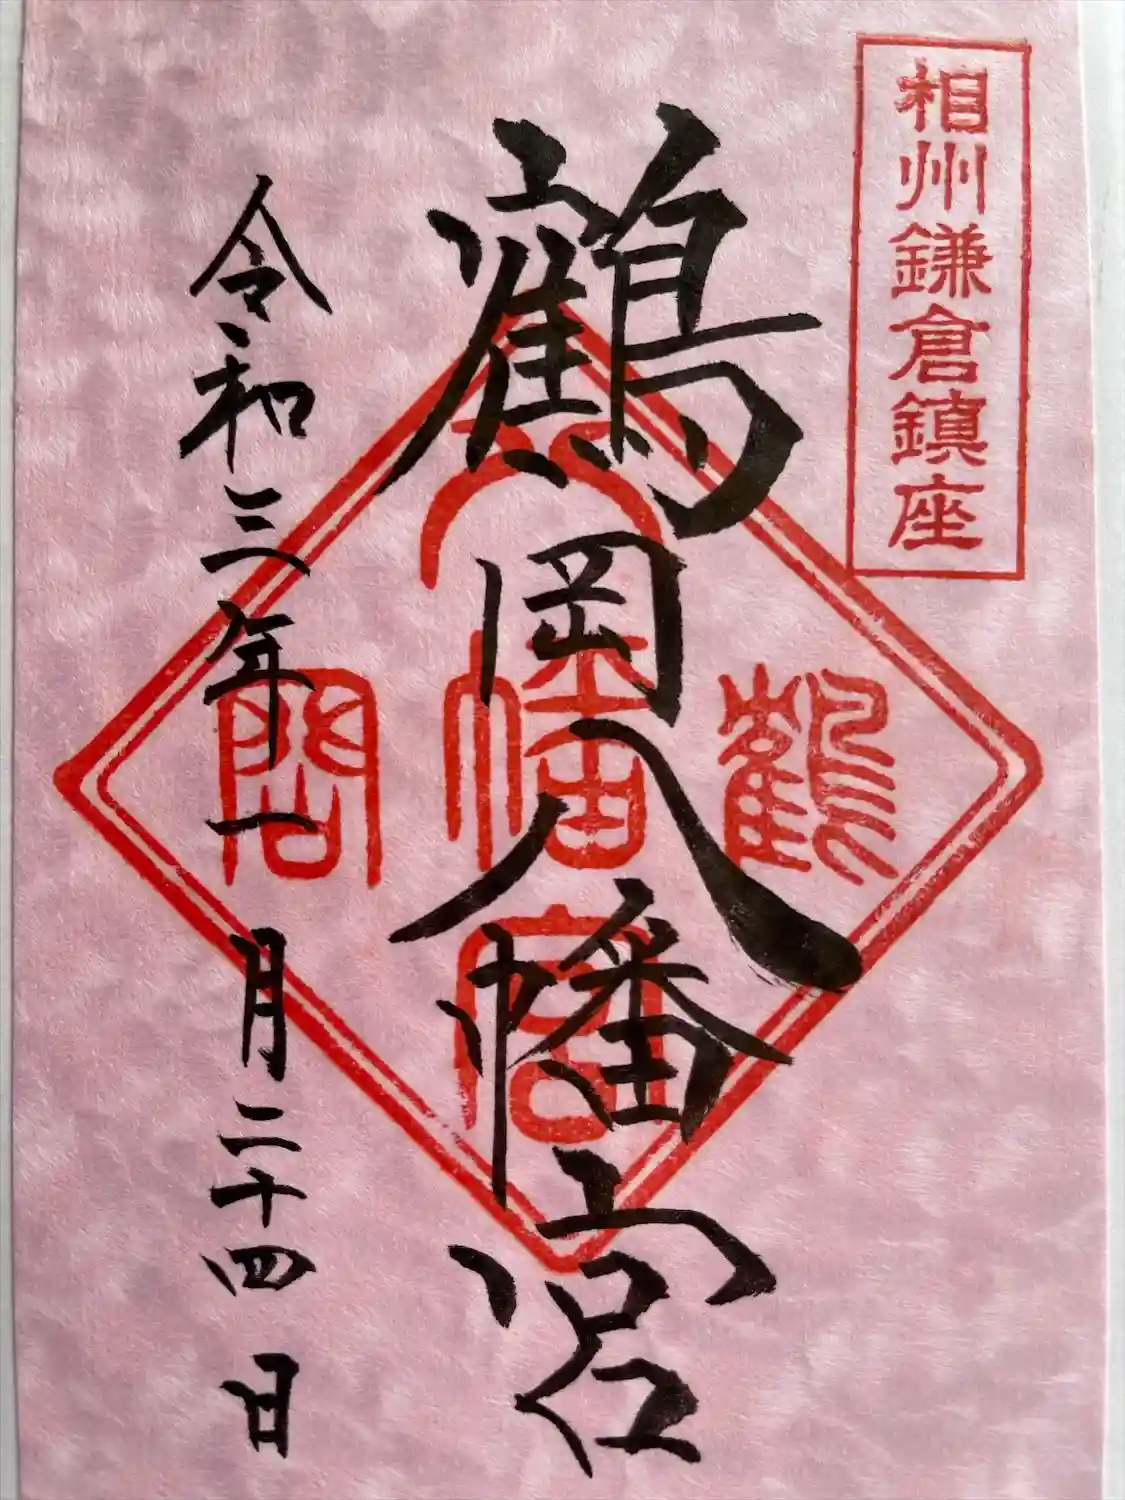 相州鎌倉鎮座
鶴岡八幡宮
鶴
八幡宮
岡
令和三年一月二十四日